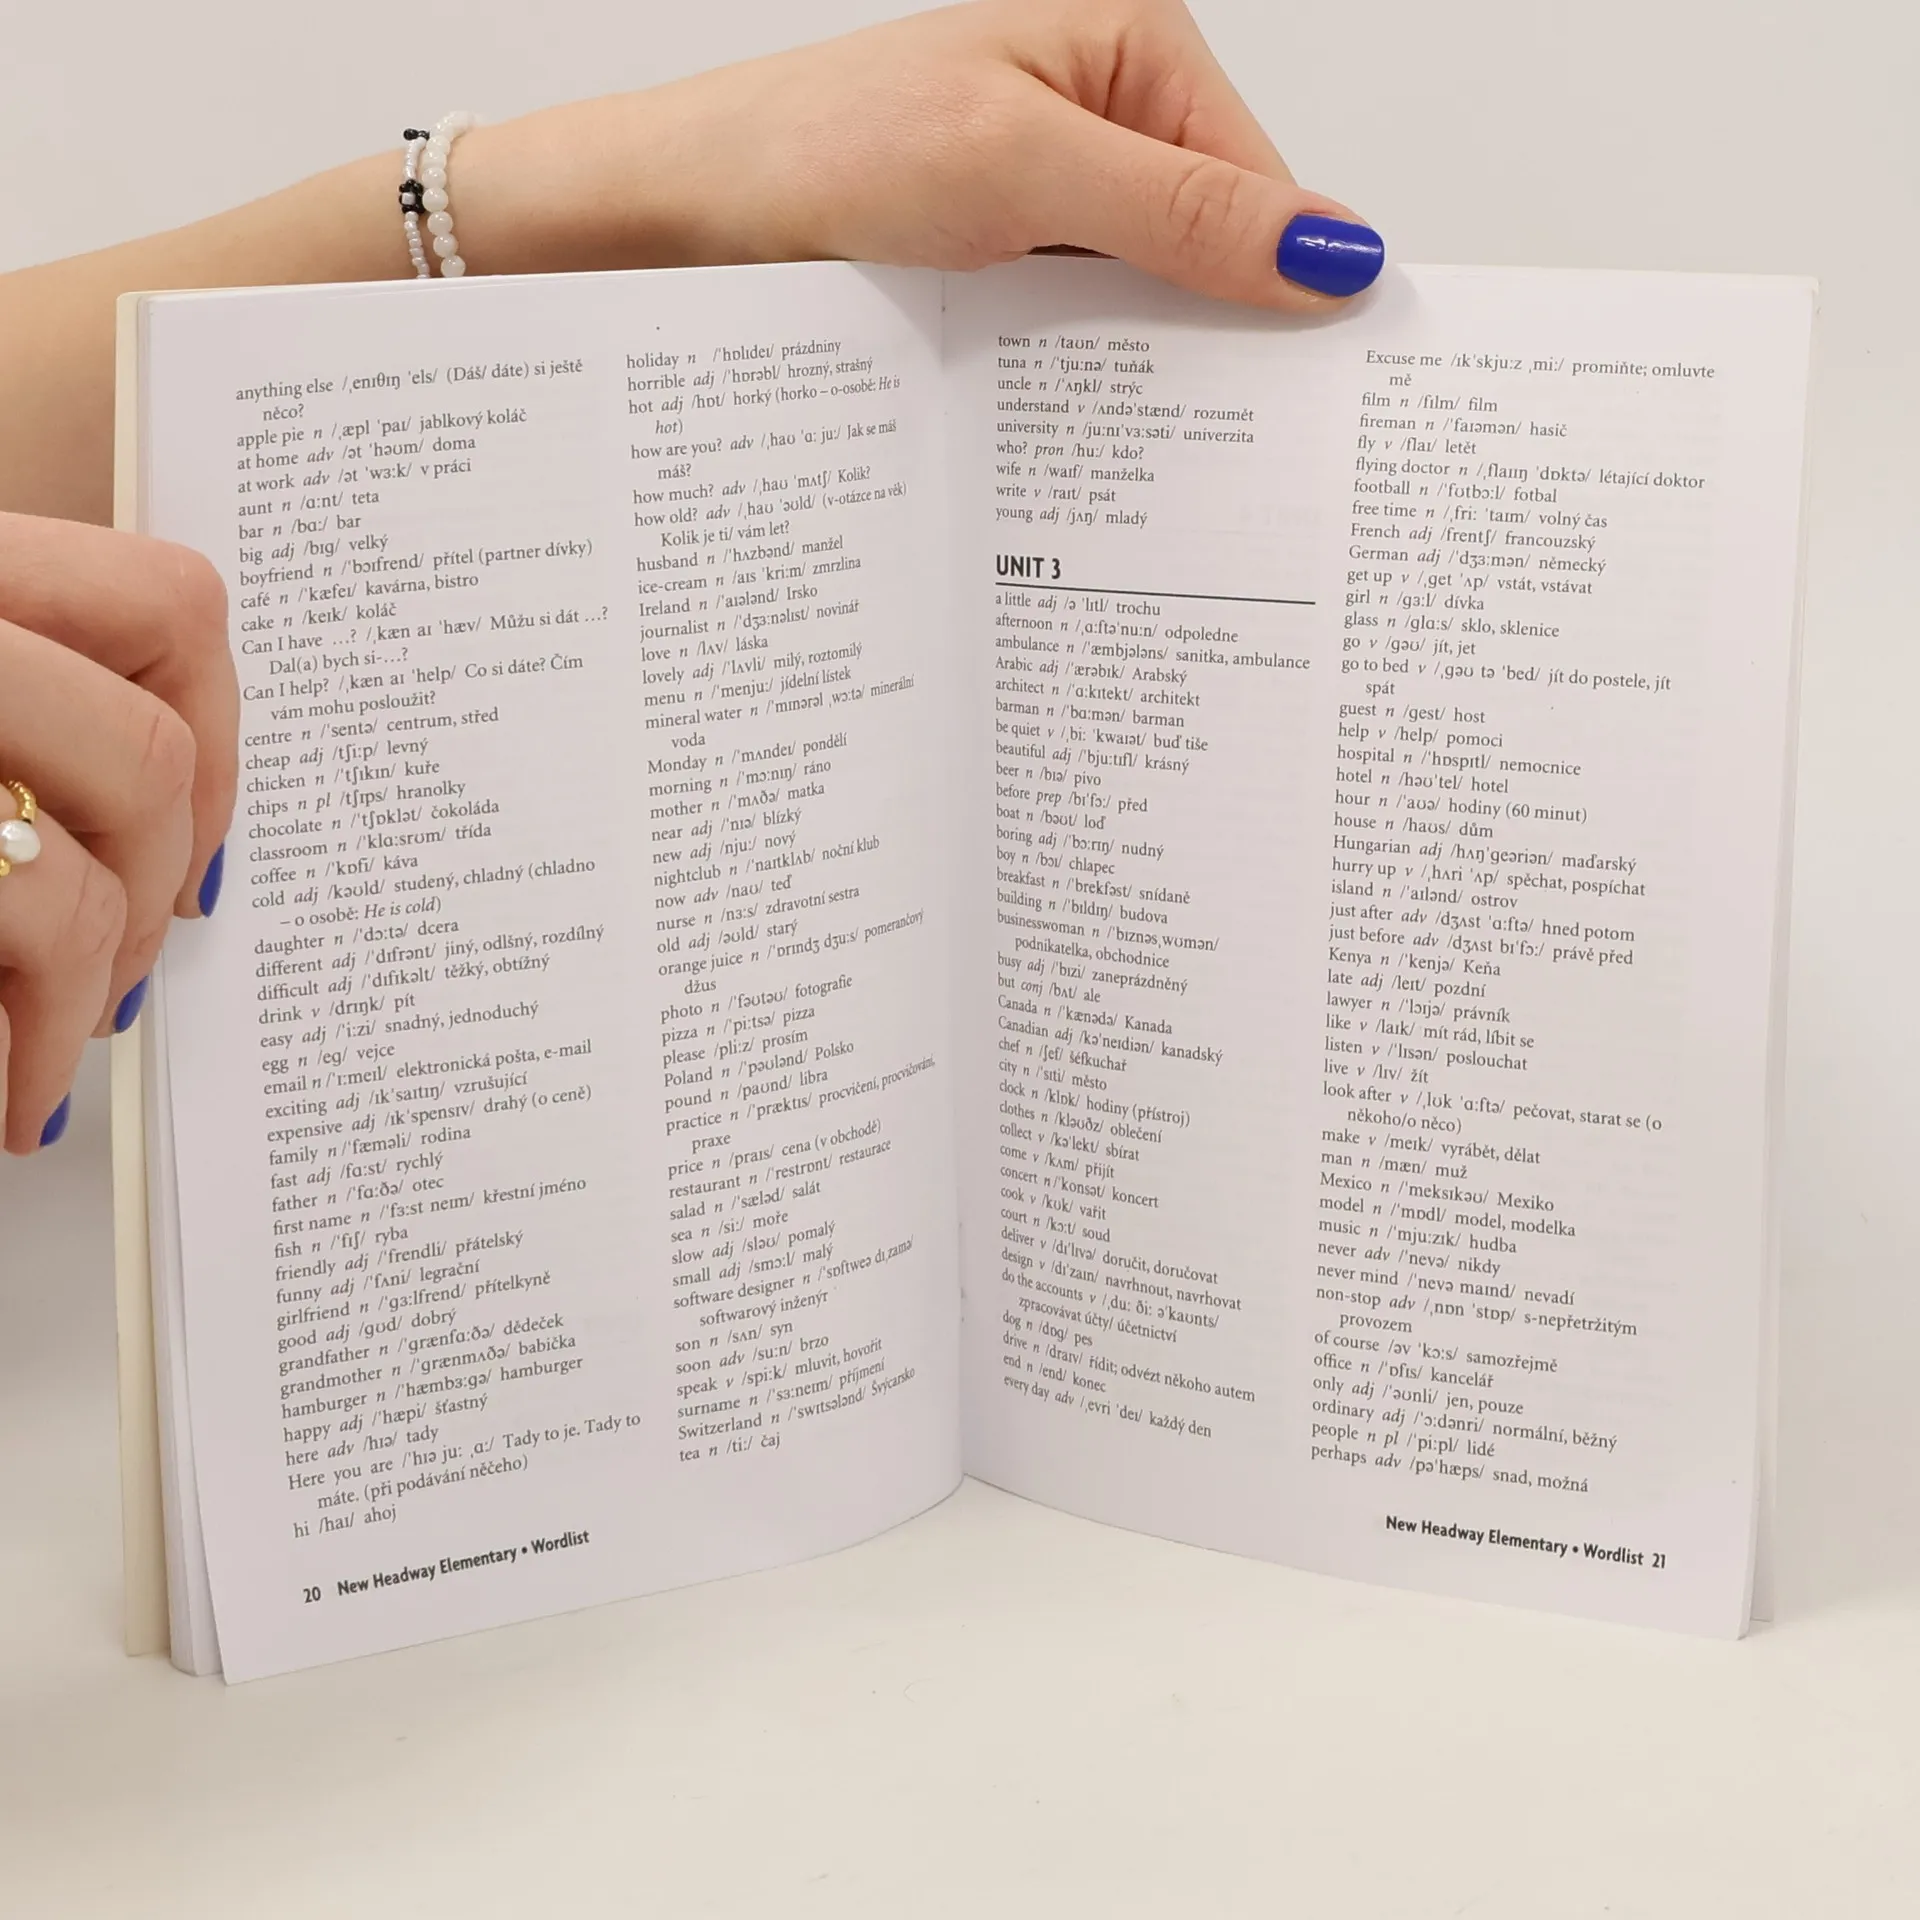 anything else /ˌenɪθɪŋ ˈels/ (Dáš/ dáte) si ještě
něco?
apple pie n /ˌæpl ˈpaɪ/ jablkový koláč
at home adv /ət ˈhəʊm/ doma
at work adv /ət ˈwɜːk/ v práci
aunt n /ɑːnt/ teta
bar n /bɑː/ bar
big adj /bɪg/ velký
boyfriend n /ˈbɔɪfrend/ přítel (partner dívky)
café n /ˈkæfeɪ/ kavárna, bistro
cake n /keɪk/ koláč
Can I have …? /ˌkæn aɪ ˈhæv/ Můžu si dát …?
Dal(a) bych si-…?
Can I help? /ˌkæn aɪ ˈhelp/ Co si dáte? Čím
vám mohu posloužit?
centre n /ˈsentə/ centrum, střed
cheap adj /tʃiːp/ levný
chicken n /ˈtʃɪkɪn/ kuře
chips n pl /tʃɪps/ hranolky
chocolate n /ˈtʃɒklət/ čokoláda
classroom n /ˈklɑːsrʊm/ třída
coffee n /ˈkɒfi/ káva
cold adj /kəʊld/ studený, chladný (chladno
– o osobě: He is cold)
daughter n /ˈdɔːtə/ dcera
different adj /ˈdɪfrənt/ jiný, odlšný, rozdílný
difficult adj /ˈdɪfɪkəlt/ těžký, obtížný
drink v /drɪŋk/ pít
easy adj /ˈiːzi/ snadný, jednoduchý
egg n /eg/ vejce
email n /ˈɪːmeɪl/ elektronická pošta, e-mail
exciting adj /ɪkˈsaɪtɪŋ/ vzrušující
expensive adj /ɪkˈspensɪv/ drahý (o ceně)
family n /ˈfæməli/ rodina
fast adj /fɑːst/ rychlý
father n /ˈfɑːðə/ otec
first name n /ˈfɜːst neɪm/ křestní jméno
fish n /ˈfɪʃ/ ryba
friendly adj /ˈfrendli/ přátelský
funny adj /ˈfʌni/ legrační
girlfriend n /ˈgɜːlfrend/ přítelkyně
good adj /gʊd/ dobrý
grandfather n /ˈgrænfɑːðə/ dědeček
grandmother n /ˈgrænmʌðə/ babička
hamburger n /ˈhæmbɜːgə/ hamburger
happy adj /ˈhæpi/ šťastný
here adv /hɪə/ tady
Here you are /ˈhɪə juː ˌɑː/ Tady to je. Tady to
máte. (při podávání něčeho)
hi /haɪ/ ahoj
20 New Headway Elementary • Wordlist
holiday n /ˈhɒlɪdeɪ/ prázdniny
horrible adj /ˈhɒrəbl/ hrozný, strašný
hot adj /hɒt/ horký (horko – o-osobě: He is
hot)
how are you? adv /ˌhaʊ ˈɑː juː/ Jak se máš
máš?
how much? adv /ˌhaʊ ˈmʌtʃ/ Kolik?
how old? adv /ˌhaʊ ˈəʊld/ (v-otázce na věk)
Kolik je ti/ vám let?
husband n /ˈhʌzbənd/ manžel
ice-cream n /aɪs ˈkriːm/ zmrzlina
Ireland n /ˈaɪələnd/ Irsko
journalist n /ˈdʒɜːnəlɪst/ novinář
love n /lʌv/ láska
lovely adj /ˈlʌvli/ milý, roztomilý
menu n /ˈmenjuː/ jídelní lístek
mineral water n /ˈmɪnərəl ˌwɔːtə/ minerální
voda
Monday n /ˈmʌndeɪ/ pondělí
morning n /ˈmɔːnɪŋ/ ráno
mother n /ˈmʌðə/ matka
near adj /ˈnɪə/ blízký
new adj /njuː/ nový
nightclub n /ˈnaɪtklʌb/ noční klub
now adv /naʊ/ teď
nurse n /nɜːs/ zdravotní sestra
old adj /əʊld/ starý
orange juice n /ˈɒrɪndʒ dʒuːs/ pomerančový
džus
photo n /ˈfəʊtəʊ/ fotografie
pizza n /ˈpiːtsə/ pizza
please /pliːz/ prosím
Poland n /ˈpəʊlənd/ Polsko
pound n /paʊnd/ libra
practice n /ˈpræktɪs/ procvičení, procvičování,
praxe
price n /praɪs/ cena (v obchodě)
restaurant n /ˈrestrɒnt/ restaurace
salad n /ˈsæləd/ salát
sea n /siː/ moře
slow adj /sləʊ/ pomalý
small adj /smɔːl/ malý
software designer n /ˈsɒftweə dɪˌzaɪnə/
softwarový inženýr
son n /sʌn/ syn
soon adv /suːn/ brzo
speak v /spiːk/ mluvit, hovořit
surname n /ˈsɜːneɪm/ příjmení
Switzerland n /ˈswɪtsələnd/ Švýcarsko
tea n /tiː/ čaj
town n /taʊn/ město
tuna n /ˈtjuːnə/ tuňák
uncle n /ˈʌŋkl/ strýc
understand v /ʌndəˈstænd/ rozumět
university n /juːnɪˈvɜːsəti/ univerzita
who? pron /huː/ kdo?
wife n /waɪf/ manželka
write v /raɪt/ psát
young adj /jʌŋ/ mladý
UNIT 3
a little adj /ə ˈlɪtl/ trochu
afternoon n /ˌɑːftəˈnuːn/ odpoledne
ambulance n /ˈæmbjələns/ sanitka, ambulance
Arabic adj /ˈærəbɪk/ Arabský
architect n /ˈɑːkɪtekt/ architekt
barman n /ˈbɑːmən/ barman
be quiet v /ˌbiː ˈkwaɪət/ buď tiše
beautiful adj /ˈbjuːtɪfl/ krásný
beer n /bɪə/ pivo
before prep /bɪˈfɔː/ před
boat n /bəʊt/ loď
boring adj /ˈbɔːrɪŋ/ nudný
boy n /bɔɪ/ chlapec
breakfast n /ˈbrekfəst/ snídaně
building n /ˈbɪldɪŋ/ budova
businesswoman n /ˈbɪznəsˌwʊmən/
podnikatelka, obchodnice
busy adj /ˈbɪzi/ zaneprázdněný
but conj /bʌt/ ale
Canada n /ˈkænədə/ Kanada
Canadian adj /kəˈneɪdiən/ kanadský
chef n /ʃef/ šéfkuchař
city n /ˈsɪti/ město
clock n /klɒk/ hodiny (přístroj)
clothes n /kləʊðz/ oblečení
collect v /kəˈlekt/ sbírat
come v /kʌm/ přijít
concert n /ˈkonsət/ koncert
cook v /kʊk/ vařit
court n /kɔːt/ soud
deliver v /dɪˈlɪvə/ doručit, doručovat
design v /dɪˈzaɪn/ navrhnout, navrhovat
do the accounts v /ˌduː ðiː əˈkaʊnts/
zpracovávat účty/ účetnictví
dog n /dɒg/ pes
drive n /draɪv/ řídit; odvézt někoho autem
end n /end/ konec
every day adv /ˌevri ˈdeɪ/ každý den
Excuse me /ɪkˈskjuːz ˌmiː/ promiňte; omluvte
mě
film n /fɪlm/ film
fireman n /ˈfaɪəmən/ hasič
fly v /flaɪ/ letět
flying doctor n /ˌflaɪɪŋ ˈdɒktə/ létající doktor
football n /ˈfʊtbɔːl/ fotbal
free time n /ˌfriː ˈtaɪm/ volný čas
French adj /frentʃ/ francouzský
German adj /ˈdʒɜːmən/ německý
get up v /ˌget ˈʌp/ vstát, vstávat
girl n /gɜːl/ dívka
glass n /glɑːs/ sklo, sklenice
go v /gəʊ/ jít, jet
go to bed v /ˌgəʊ tə ˈbed/ jít do postele, jít
spát
guest n /gest/ host
help v /help/ pomoci
hospital n /ˈhɒspɪtl/ nemocnice
hotel n /həʊˈtel/ hotel
hour n /ˈaʊə/ hodiny (60 minut)
house n /haʊs/ dům
Hungarian adj /hʌŋˈgeəriən/ maďarský
hurry up v /ˌhʌri ˈʌp/ spěchat, pospíchat
island n /ˈaɪlənd/ ostrov
just after adv /dʒʌst ˈɑːftə/ hned potom
just before adv /dʒʌst bɪˈfɔː/ právě před
Kenya n /ˈkenjə/ Keňa
late adj /leɪt/ pozdní
lawyer n /ˈlɔɪjə/ právník
like v /laɪk/ mít rád, líbit se
listen v /ˈlɪsən/ poslouchat
live v /lɪv/ žít
look after v /ˌlʊk ˈɑːftə/ pečovat, starat se (o
někoho/o něco)
make v /meɪk/ vyrábět, dělat
man n /mæn/ muž
Mexico n /ˈmeksɪkəʊ/ Mexiko
model n /ˈmɒdl/ model, modelka
music n /ˈmjuːzɪk/ hudba
never adv /ˈnevə/ nikdy
never mind /ˈnevə maɪnd/ nevadí
non-stop adv /ˌnɒn ˈstɒp/ s-nepřetržitým
provozem
of course /əv ˈkɔːs/ samozřejmě
office n /ˈɒfɪs/ kancelář
only adj /ˈəʊnli/ jen, pouze
ordinary adj /ˈɔːdənri/ normální, běžný
people n pl /ˈpiːpl/ lidé
perhaps adv /pəˈhæps/ snad, možná
New Headway Elementary • Wordlist 21